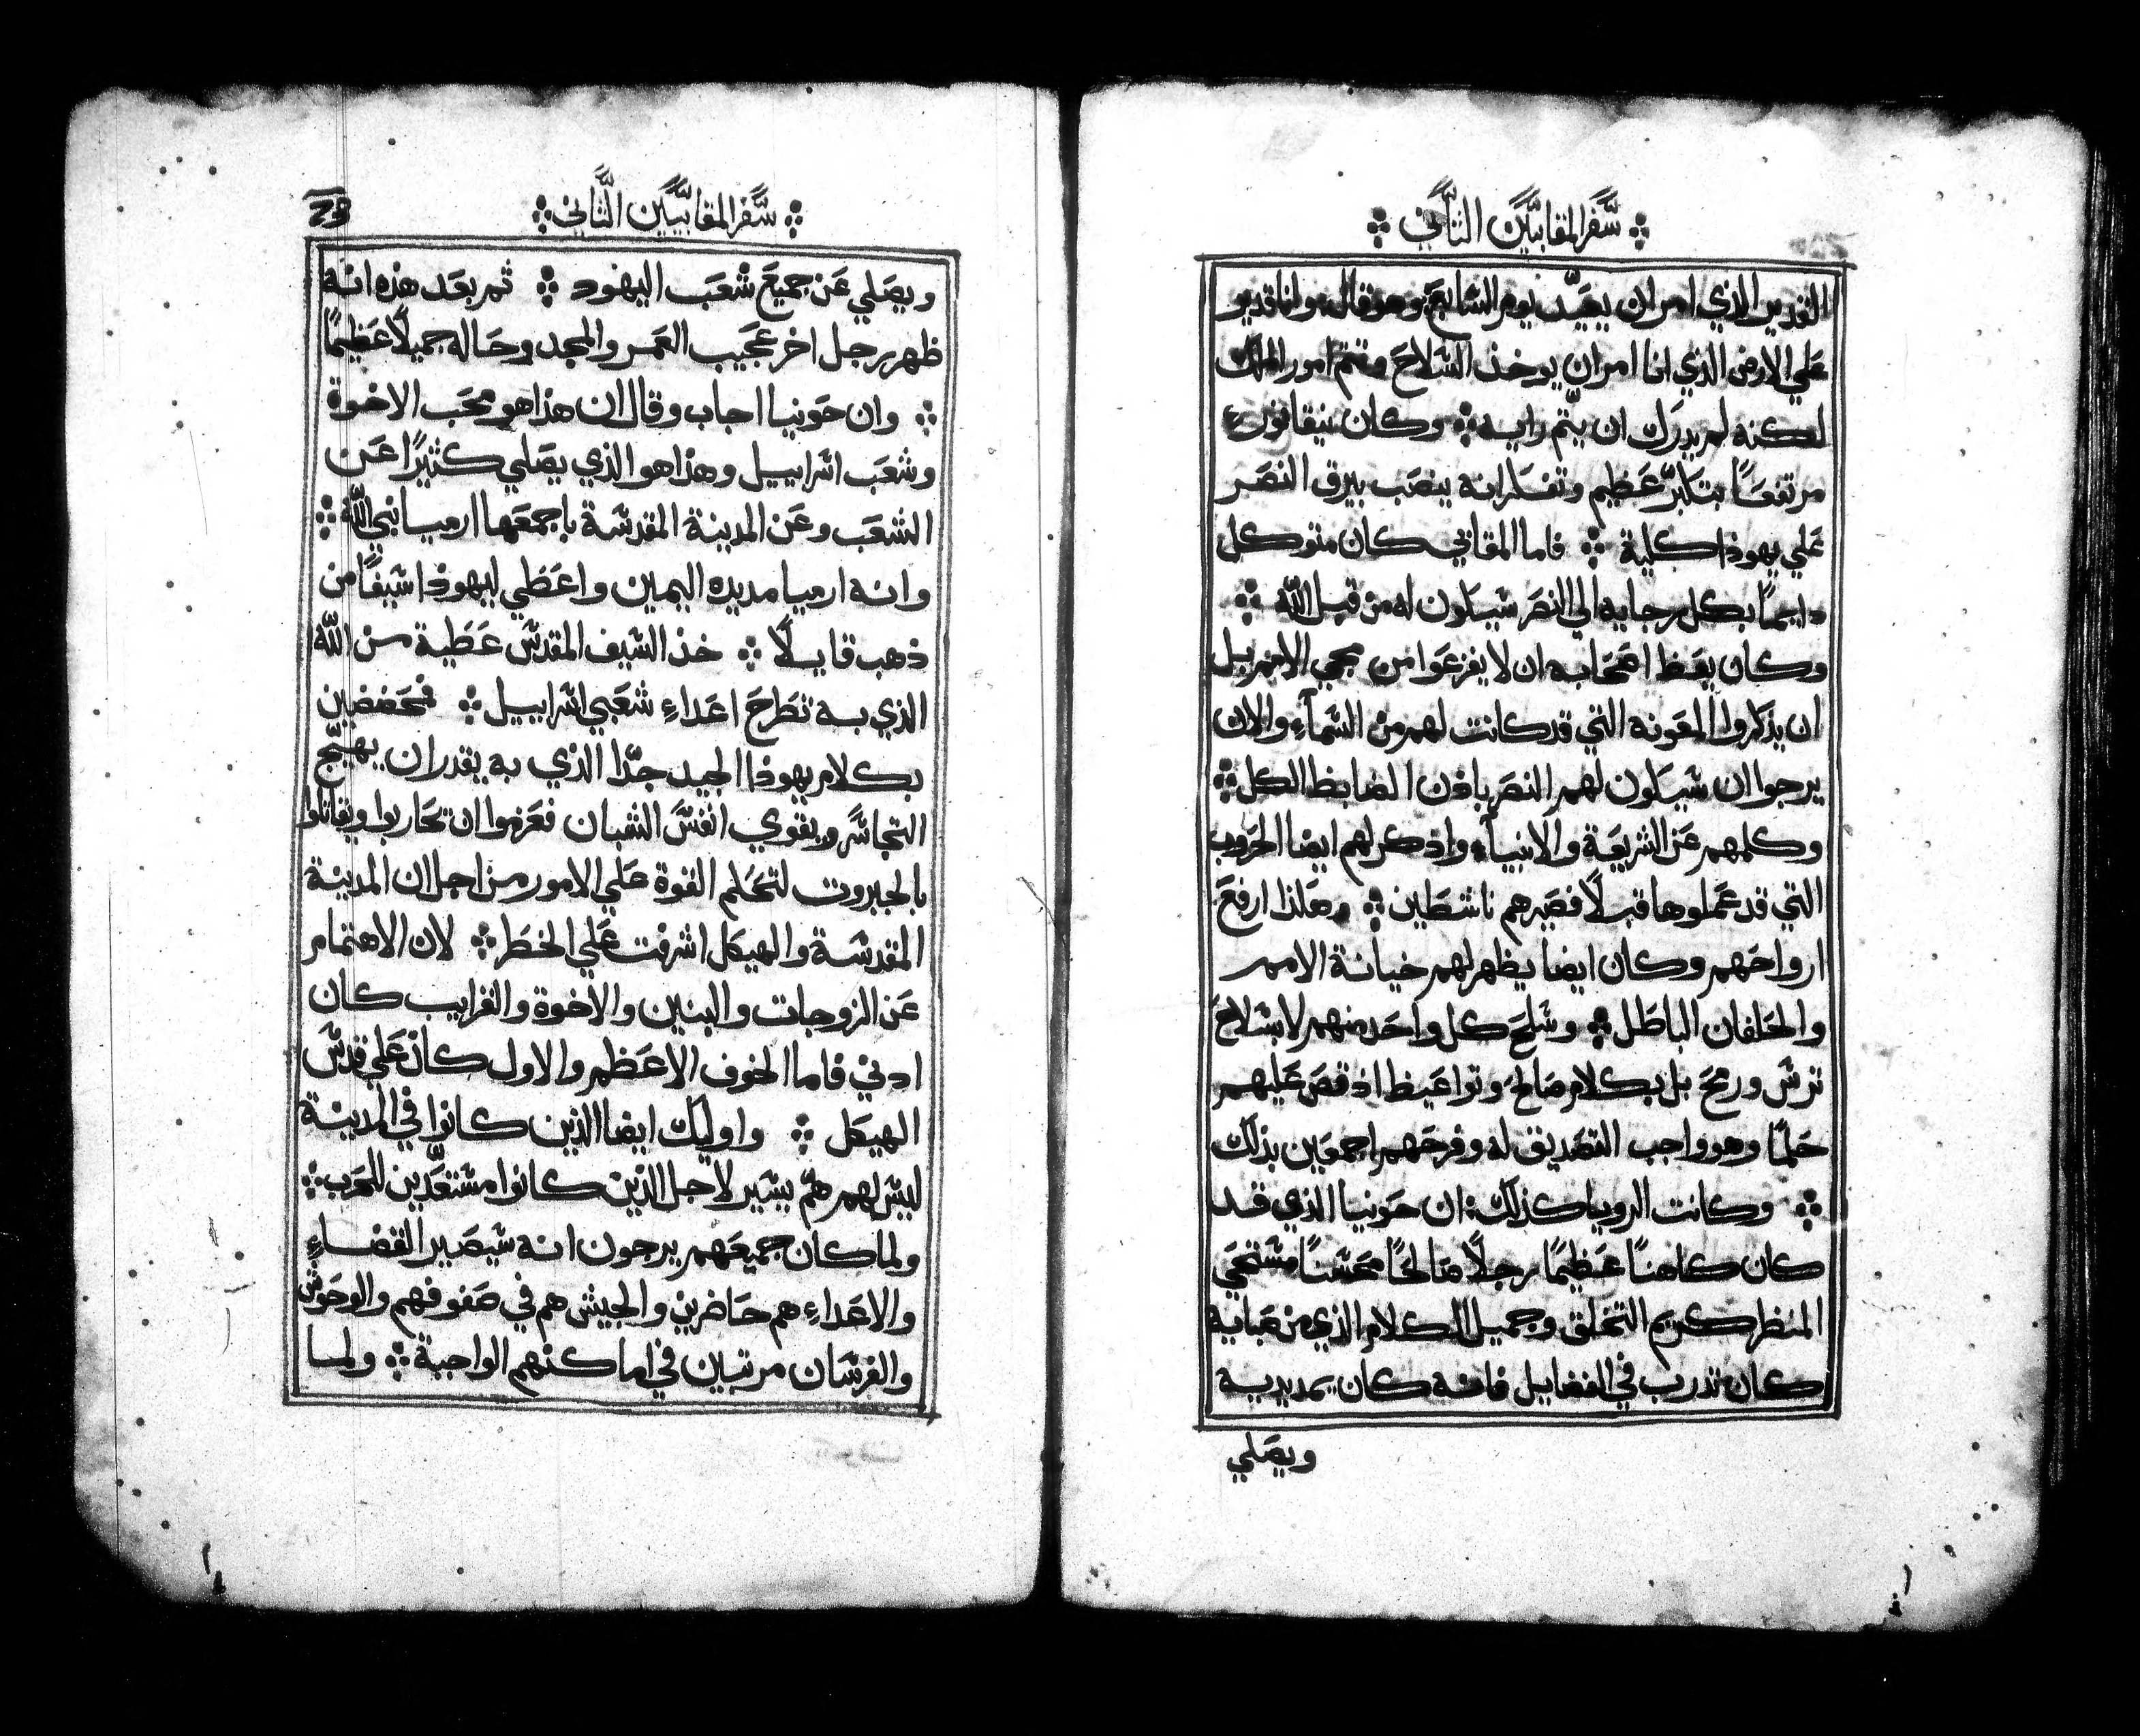 سفر المقابيين الثاني
القدير الذي امر ان يعيد يوم السابع وهو قال وانا قدير
علي الارض الذي انا امر ان يوخذ السلاح وتتم امور الملك
لكنه لم يدرك ان يتم رايه وكان نيقانور
مرتفعًا بتكبر عظيم وتفكر انه ينصب بيرق النصر
علي يهوذا كلية فاما المقابي كان متوكل
دايمًا بكل رجايه الي النصر سيكون له من قبل الله
وكان يعظ اصحابه ان لا يفزعوا من مجي الامم بل
ان يذكروا المعونه التي قد كانت لهم من السمآء والان
يرجوا ان سيكون لهم النصر باذن الضابط الكل
وكلمهم عن الشريعة والانبيآء واذكر لهم ايضا الحروب
التي قد عملوها قبلًا فصيرهم ناشطين وهكذا ارفع
ارواحهم وكان ايضا يظهر لهم خيانة الامم
والحلفان الباطل وسلح كل واحد منهم لا بسلاح
ترس ورمح بل بكلام صالح وتواعيظ اذ قص عليهم
حلمًا وهو واجب التصديق له وفرحهم اجمعين بذلك
وكانت الرويا كذلك ان حونيا الذي قد
كان كاهنًا عظيمًا رجلًا صالحًا محسنًا مستحي
المنظر كريم التخلق وجميل الكلام الذي من صبايه
كان تدرب في الفضايل فانه كان يمد يديه
ويصلي
سفر المقابيين الثاني
ويصلي عن جميع شعب اليهود ثم بعد هذه انه
ظهر رجل اخر عجيب العمر والمجد وحاله جميلًا عظيمًا
وان حونيا اجاب وقال ان هذا هو محب الاخوة
وشعب اسراييل وهذا هو الذي يصلي كثيرًا عن
الشعب وعن المدينة المقدسة باجمعها ارميا نبي الله
وانه ارميا مد يده اليمين واعطي ليهوذا سيفًا من
ذهب قايلًا خذ السيف المقدس عطية من الله
الذي به تطرح اعداء شعبي اسراييل فتحضضين
بكلام يهوذا الجيد جدًا الذي به يقدر ان يهيج
التجاسر ويقوي انفس الشبان فعزموا ان تحاربوا ويقاتلوا
بالجبروت لتحكم القوة علي الامور من اجل ان المدينة
المقدسة والهيكل اشرفت علي الخطر لان الاهتمام
عن الزوجات والبنين والاخوة والقرايب كان
ادني فاما الخوف الاعظم والاول كان علي قدس
الهيكل واوليك ايضا الذين كانوا في المدينة
ليس لهم هم يسير لاجل الذين كانوا مستعدين للحرب
ولما كان جميعهم يرجون انه سيصير القضاء
والاعداء هم حاضرين والجيش هم في صفوفهم والوحوش
والفرسان مرتبين في اماكنهم الواجبة ولما